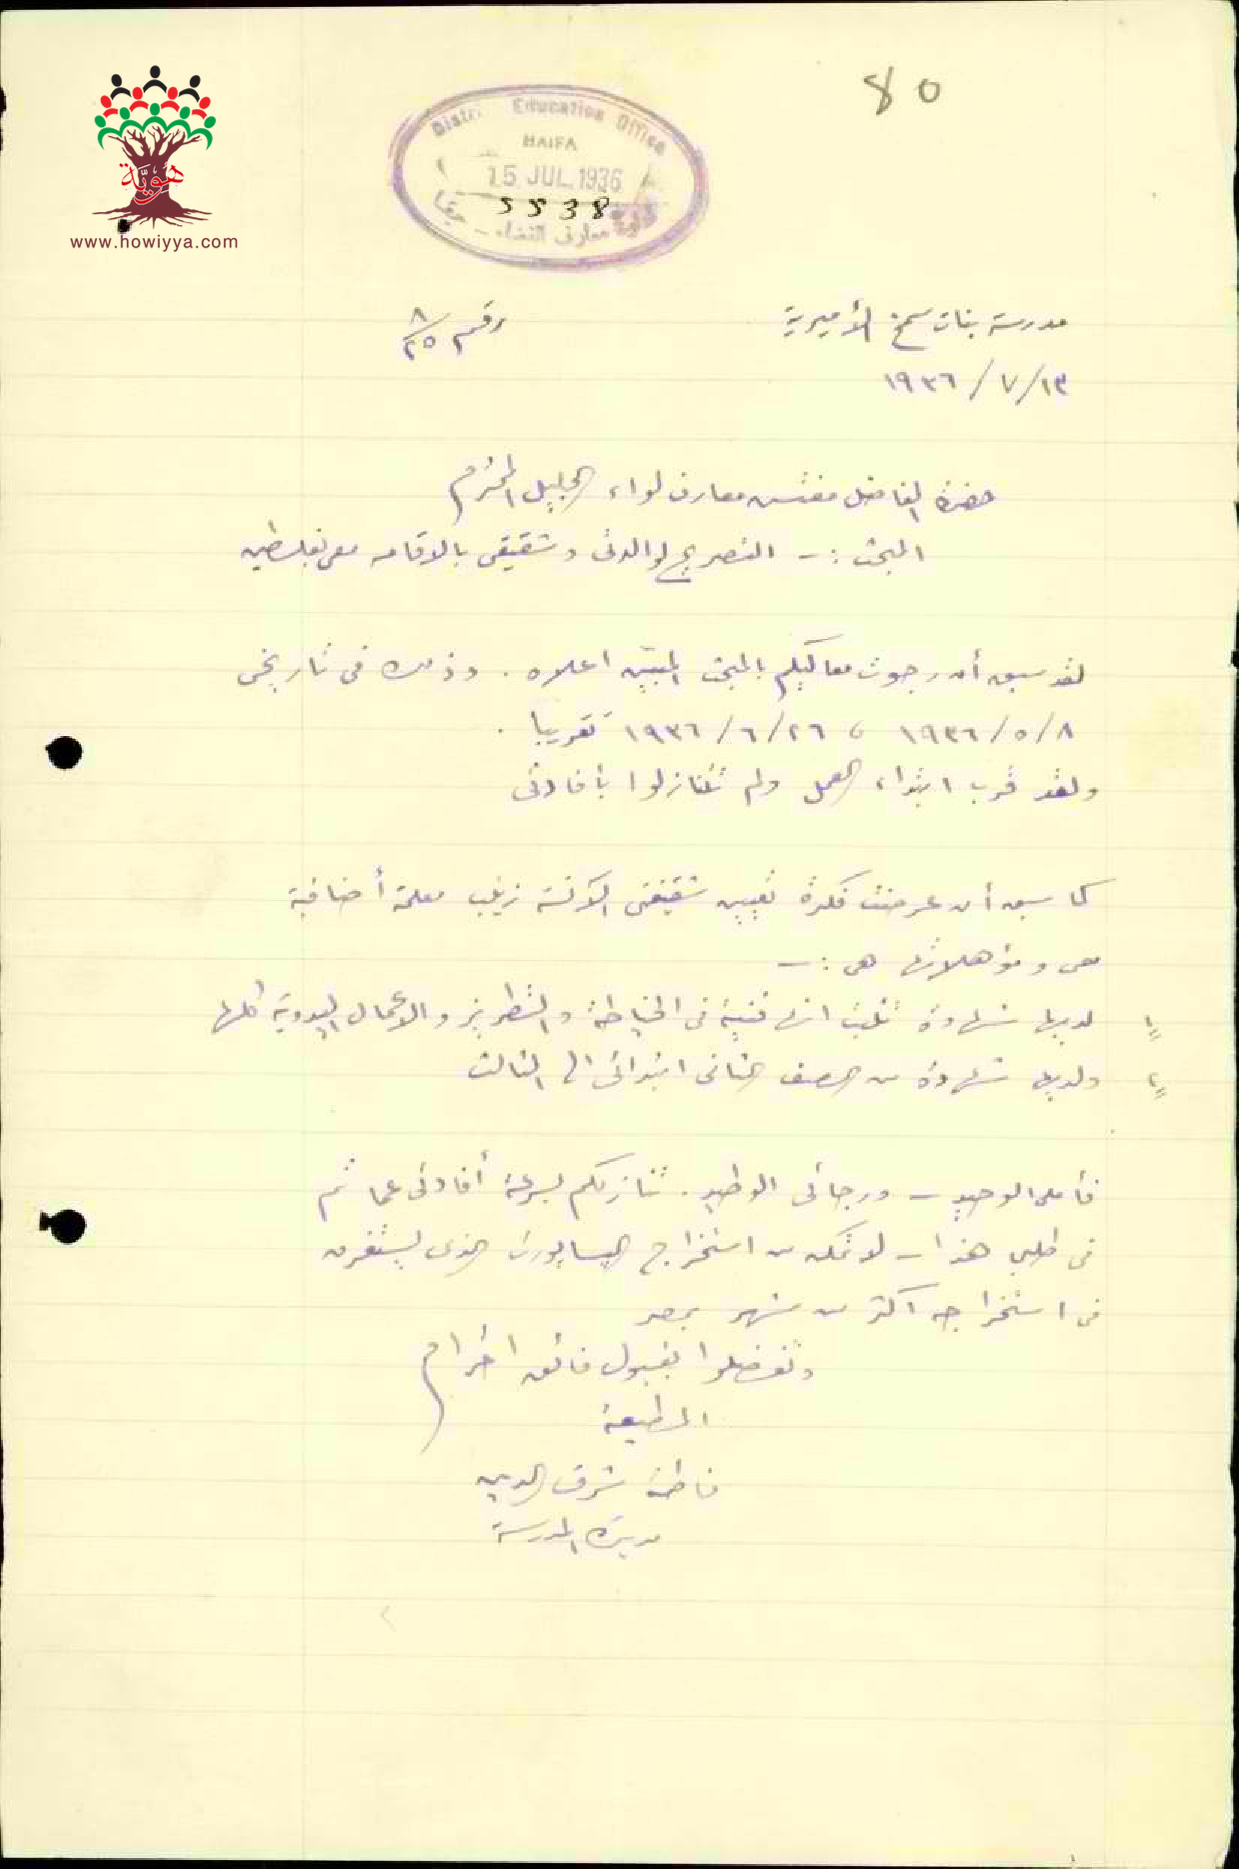 80
هوية
www.howiyya.com
District Education Office
HAIFA
15 JUL 1936
5538
معارف القضاء – حيفا
مدرسة بنات سمخ الأميرية
رقم ٨/٢٥
١٣/٧/١٩٣٦
حضرة الفاضل مفتش معارف لواء الجليل المحترم
المبحث :– التصريح لوالدتى وشقيقتى بالاقامه معى بفلسطين
لقد سبق أن رجوت معاليكم بالمبحث المبين اعلاه . وذلك فى تاريخى
٨/٥/١٩٣٦ ، ٢٦/٦/١٩٣٦ تقريبا .
ولقد قرب ابتداء العمل ولم تتنازلوا بأفادتى
كما سبق أن عرضت فكرة تعيين شقيقتى الآنسة زينب معلمة أضافية
معى ومؤهلاتها هى :–
١ لديها شهادة تثبت انها فنية فى الخياطة والتطريز والاعمال اليدوية كلها
٢ ولديها شهادة من الصف الثانى ابتدائى الى الثالث
فأملى الوحيد – ورجائى الوطيد . تنازلكم بسرعة أفادتى عما تم
فى طلبى هذا – لاتمكن من استخراج البسابورت الذى يستغرق
فى استخراجه اكثر من شهر بمصر
وتفضلوا بقبول فائق احترام
المطيعة
فاطمة شرف الدين
مديرة المدرسة